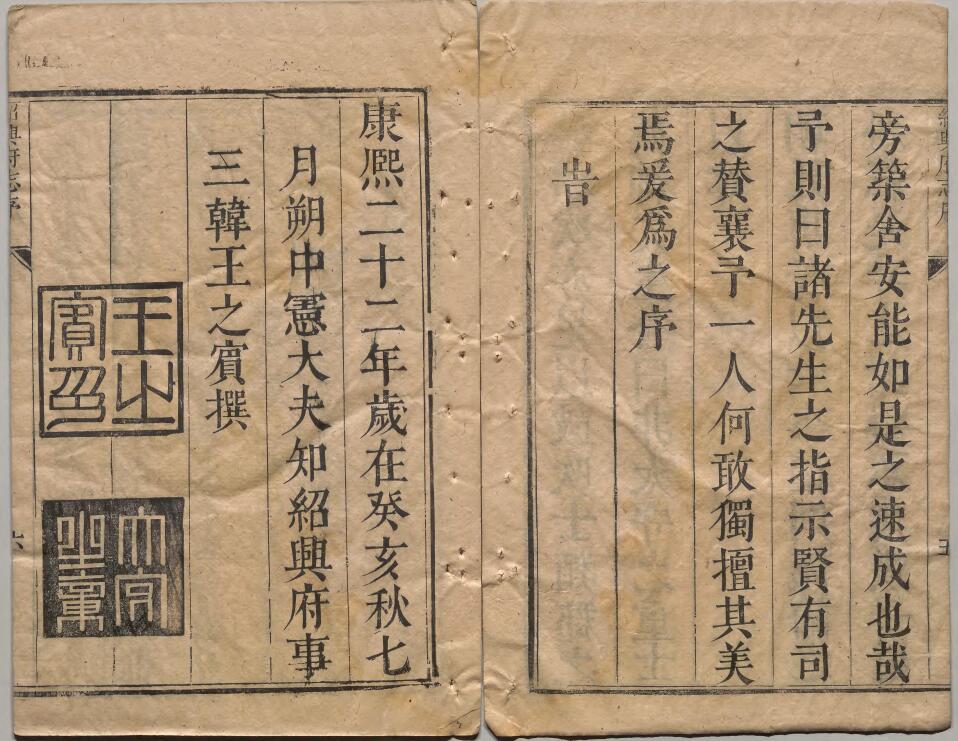 旁築舍安能如是之速成也哉
予則曰諸先生之指示賢有司
之賛襄予一人何敢獨擅其美
焉爰爲之序
旹
康熙二十二年歲在癸亥秋七
月朔中憲大夫知紹興府事
三韓王之賓撰
王之賓印
紹興府志序
六
紹興府志序
五